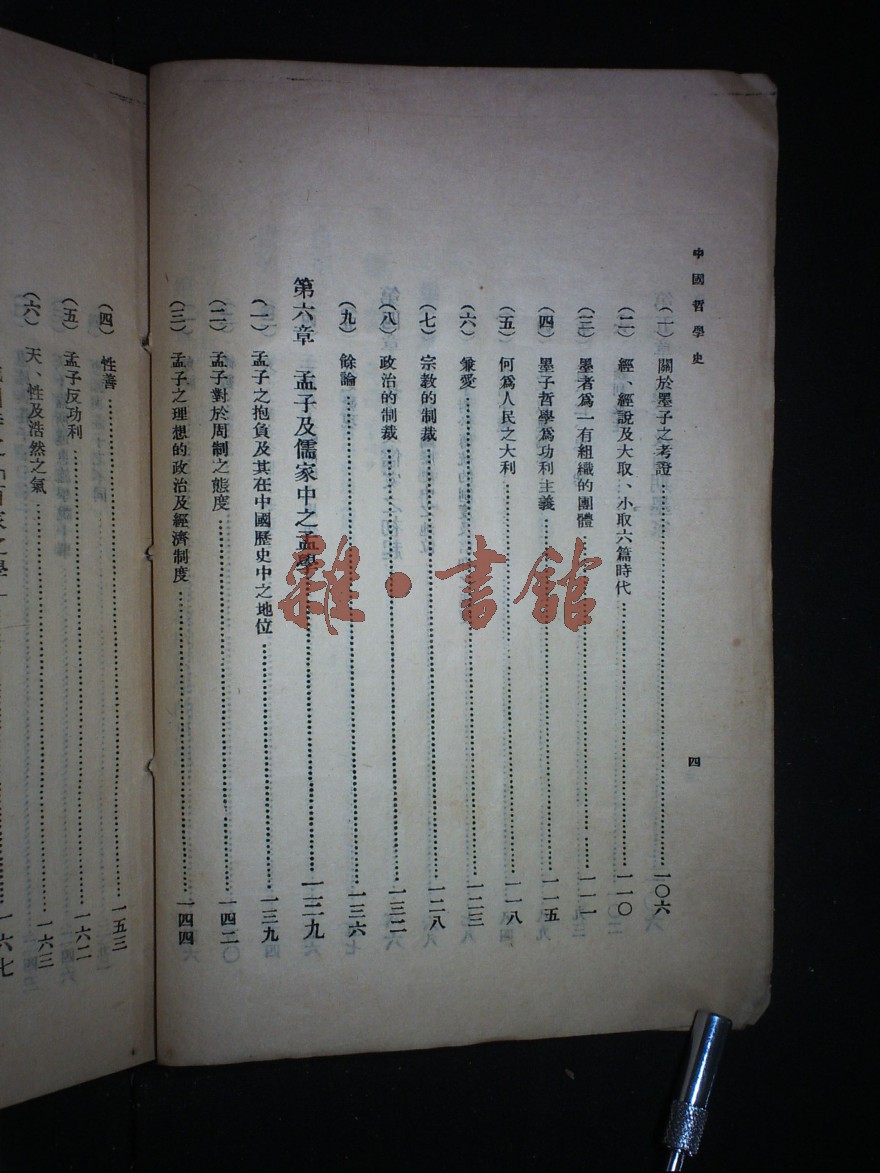 中國哲學史
四
（一）關於墨子之考證……一〇六
（二）經、經說及大取、小取六篇時代……一一〇
（三）墨者爲一有組織的團體……一一一
（四）墨子哲學爲功利主義……一一五
（五）何爲人民之大利……一一八
（六）兼愛……一二三
（七）宗教的制裁……一二八
（八）政治的制裁……一三二
（九）餘論……一三六
第六章　孟子及儒家中之孟學……一三九
（一）孟子之抱負及其在中國歷史中之地位……一三九
（二）孟子對於周制之態度……一四二
（三）孟子之理想的政治及經濟制度……一四四
（四）性善……一五三
（五）孟子反功利……一六二
（六）天、性及浩然之氣……一六三
百家之學……一六七
雜·書館